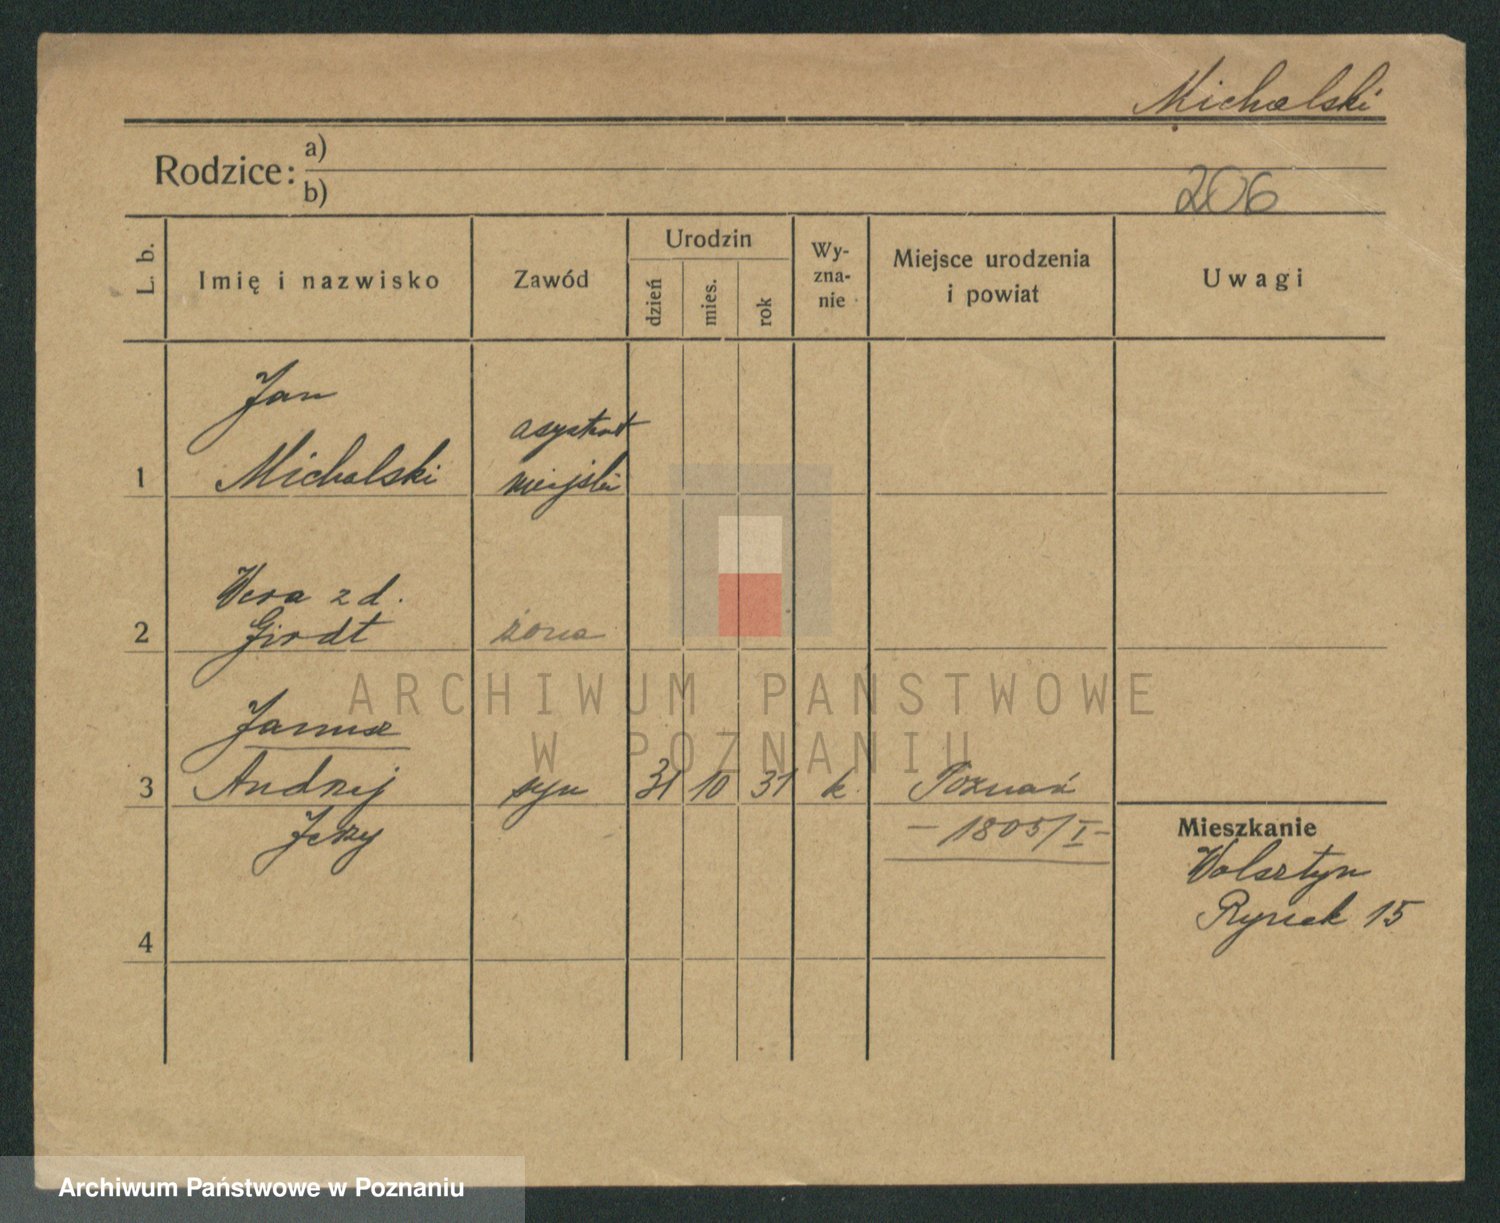 Michalski
Rodzice: a)
b)
206
L. b.
Imię i nazwisko
Zawód
Urodzin
dzień
mies.
rok
Wy-
zna-
nie
Miejsce urodzenia
i powiat
Uwagi
Jan
asystent
1 Michalski miejski
Wera z d.
2 Girdt żona
ARCHIWUM PAŃSTWOWE
W POZNANIU
Janusz
3 Andrzej syn 31 10 31 k. Poznań
Jerzy
– 1805/I –
Mieszkanie
Wolsztyn
Rynek 15
4
Archiwum Państwowe w Poznaniu